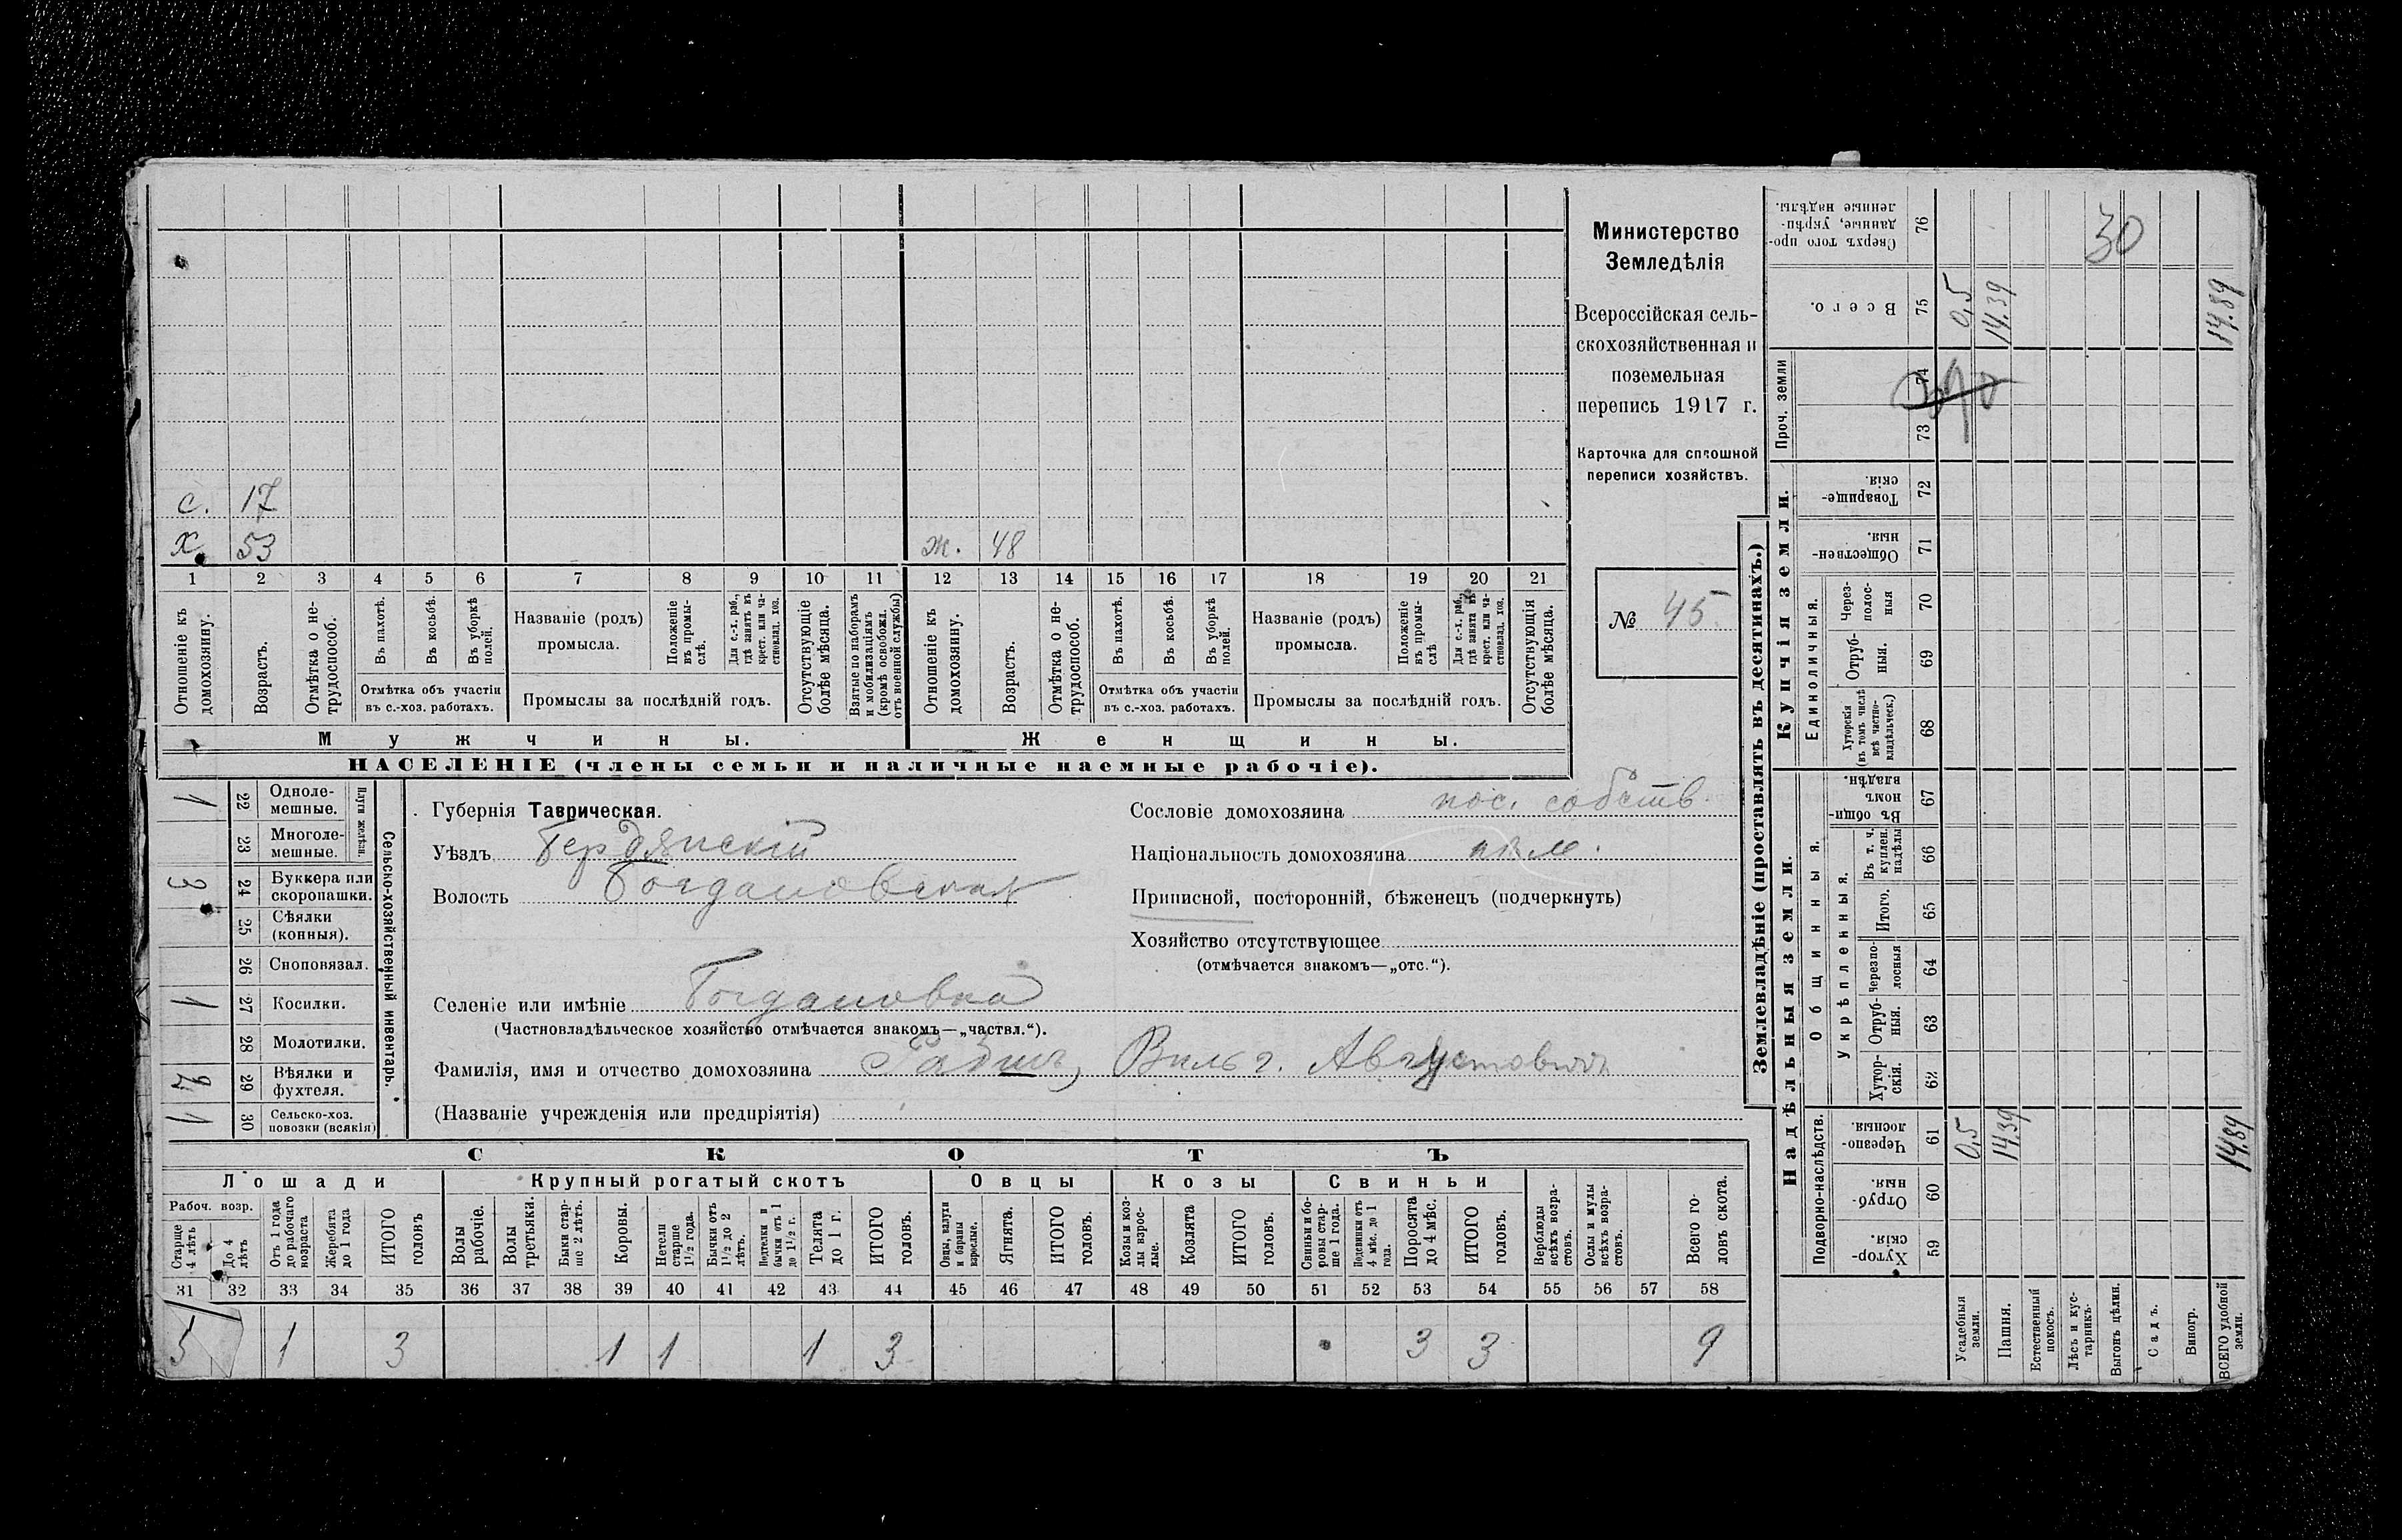 с. 17
х. 53
ж. 48
1 2 3 4 5 6 7 8 9 10 11 12 13 14 15 16 17 18 19 20 21
Отношеніе къ домохозяину.
Возрастъ.
Отмѣтка о не-трудоспособ.
Въ пахотѣ.
Въ косьбѣ.
Въ уборкѣ полей.
Отмѣтка объ участіи
въ с.-хоз. работахъ.
Названіе (родъ)
промысла.
Положеніе въ промы-слѣ.
Для с.-х. раб., гдѣ занятъ въ крест. или ча-стновлад. хоз.
Промыслы за послѣдній годъ.
Отсутствующіе болѣе мѣсяца.
Взятые по наборамъ и мобилизаціямъ (кромѣ освобожд. отъ военной службы)
Отношеніе къ домохозяину.
Возрастъ.
Отмѣтка о не-трудоспособ.
Въ пахотѣ.
Въ косьбѣ.
Въ уборкѣ полей.
Отмѣтка объ участіи
въ с.-хоз. работахъ.
Названіе (родъ)
промысла.
Положеніе въ промы-слѣ
Для с.-х. раб., гдѣ занята въ крест. или ча-стновлад. хоз.
Промыслы за послѣдній годъ.
Отсутствующія болѣе мѣсяца.
Мужчины. Женщины.
НАСЕЛЕНІЕ (члены семьи и наличные наемные рабочіе).
Министерство
Земледѣлія
Всероссійская сель-
скохозяйственная и
поземельная
перепись 1917 г.
Карточка для сплошной
переписи хозяйствъ.
№ 45.
Сельско-хозяйственный инвентарь.
Плуги желѣзн.
1 22 Одноле-мешные.
23 Многоле-мешные.
3 24 Буккера или скоропашки.
25 Сѣялки (конныя).
26 Сноповязал.
1 27 Косилки.
28 Молотилки.
29 Вѣялки и фухтеля.
1 30 Сельско-хоз. повозки (всякія)
Губернія Таврическая.
Уѣздъ Бердянскій
Волость Богдановская
Селеніе или имѣніе Богдановка
(Частновладѣльческое хозяйство отмѣчается знакомъ—„частвл.“).
Фамилія, имя и отчество домохозяина Вильг. Августовичъ
(Названіе учрежденія или предпріятія)
Сословіе домохозяина пос. собств.
Національность домохозяина нѣм.
Приписной, посторонній, бѣженецъ (подчеркнуть)
Хозяйство отсутствующее
(отмѣчается знакомъ—„отс.“).
СКОТЪ
Лошади
Рабоч. возр.
Старще 4 лѣтъ
До 4 лѣтъ
Отъ 1 года до рабочаго возраста
Жеребята до 1 года
ИТОГО головъ
Крупный рогатый скотъ
Волы рабочіе.
Волы третьяки.
Быки стар-ше 2 лѣтъ.
Коровы.
Нетели старше 1½ года.
Бычки отъ 1½ до 2 лѣтъ.
Подтелки и бычки отъ 1 до 1½ г.
Телята до 1 г.
ИТОГО головъ.
Овцы
Овцы, валухи и бараны взрослые.
Ягнята.
ИТОГО головъ.
Козы
Козы и коз-лы взрос-лые.
Козлята
ИТОГО головъ.
Свиньи
Свиньи и бо-ровы стар-ше 1 года.
Подсвинки отъ 4 мѣс. до 1 года.
Поросята до 4 мѣс.
ИТОГО головъ.
Верблюды всѣхъ возра-стовъ.
Ослы и мулы всѣхъ возра-стовъ.
Всего го-ловъ скота.
31 32 33 34 35 36 37 38 39 40 41 42 43 44 45 46 47 48 49 50 51 52 53 54 55 56 57 58
1 3 1 1 1 3 3 3 9
Землевладѣніе (проставлять въ десятинахъ.)
Купчія земли.
Надѣльныя земли.
Сверхъ того про-данные, укрѣп-ленные надѣлы. 76 30
Всего. 75 0,5 14.39 14.89
Проч. земли 74 73
Товарище-скія. 72
Обществен-ныя. 71
Единоличныя.
Черезполос-ныя 70
Отруб-ныя. 69
Хуторскія (въ томъ числѣ всѣ частно-владѣльческ.) 68
Общинныя.
Въ общин-номъ владѣн. 67
Укрѣпленныя.
Въ т. ч. куплен. надѣлы 66
Итого. 65
Черезпо-лосныя 64
Отруб-ныя. 63
Хутор-скія. 62
Подворно-наслѣдств.
Черезпо-лосныя. 61 0,5 14.39 14.89
Отруб-ныя. 60
Хутор-скія. 59
Усадебныя земли.
Пашня.
Естественный покосъ.
Лѣсъ и кус-тарникъ.
Выгонъ цѣлин.
Садъ.
Виногр.
ВСЕГО удобной земли.